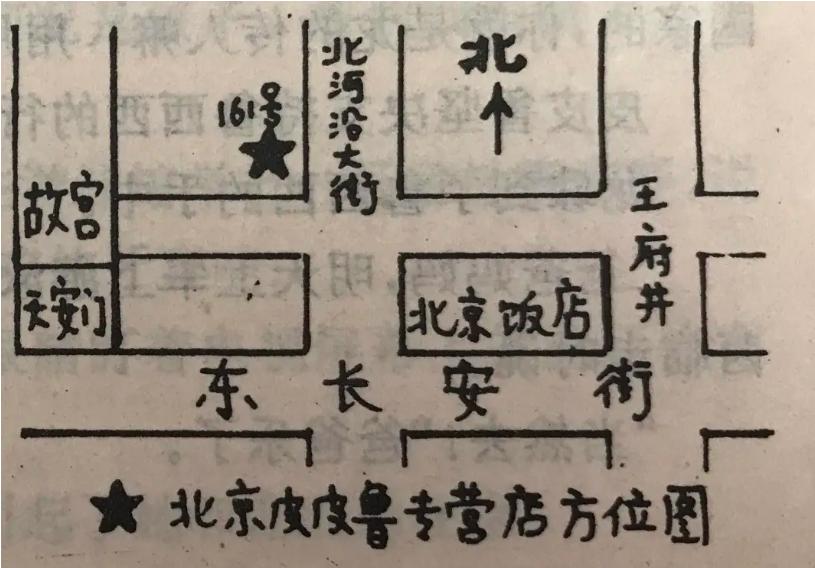 北河沿大街
北
161号
故宫
王府井
天安门
北京饭店
东长安街
★北京皮皮鲁专营店方位图